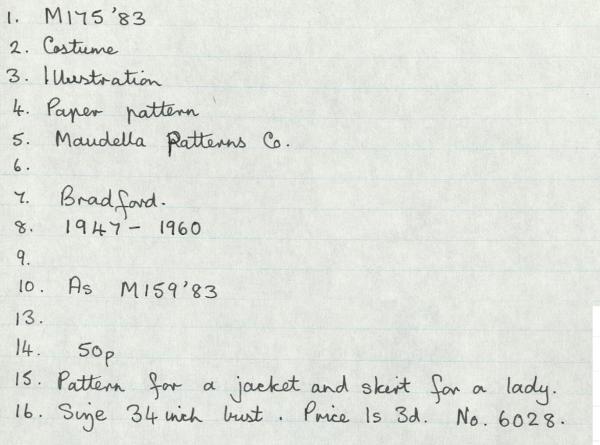 1. M175'83
2. Costume
3. Illustration
4. Paper pattern
5. Maudella Patterns Co.
6.
7. Bradford.
8. 1947 - 1960
9.
10. As M159'83
13.
14. 50p
15. Pattern for a jacket and skirt for a lady.
16. Size 34 inch bust. Price 1s 3d. No. 6028.